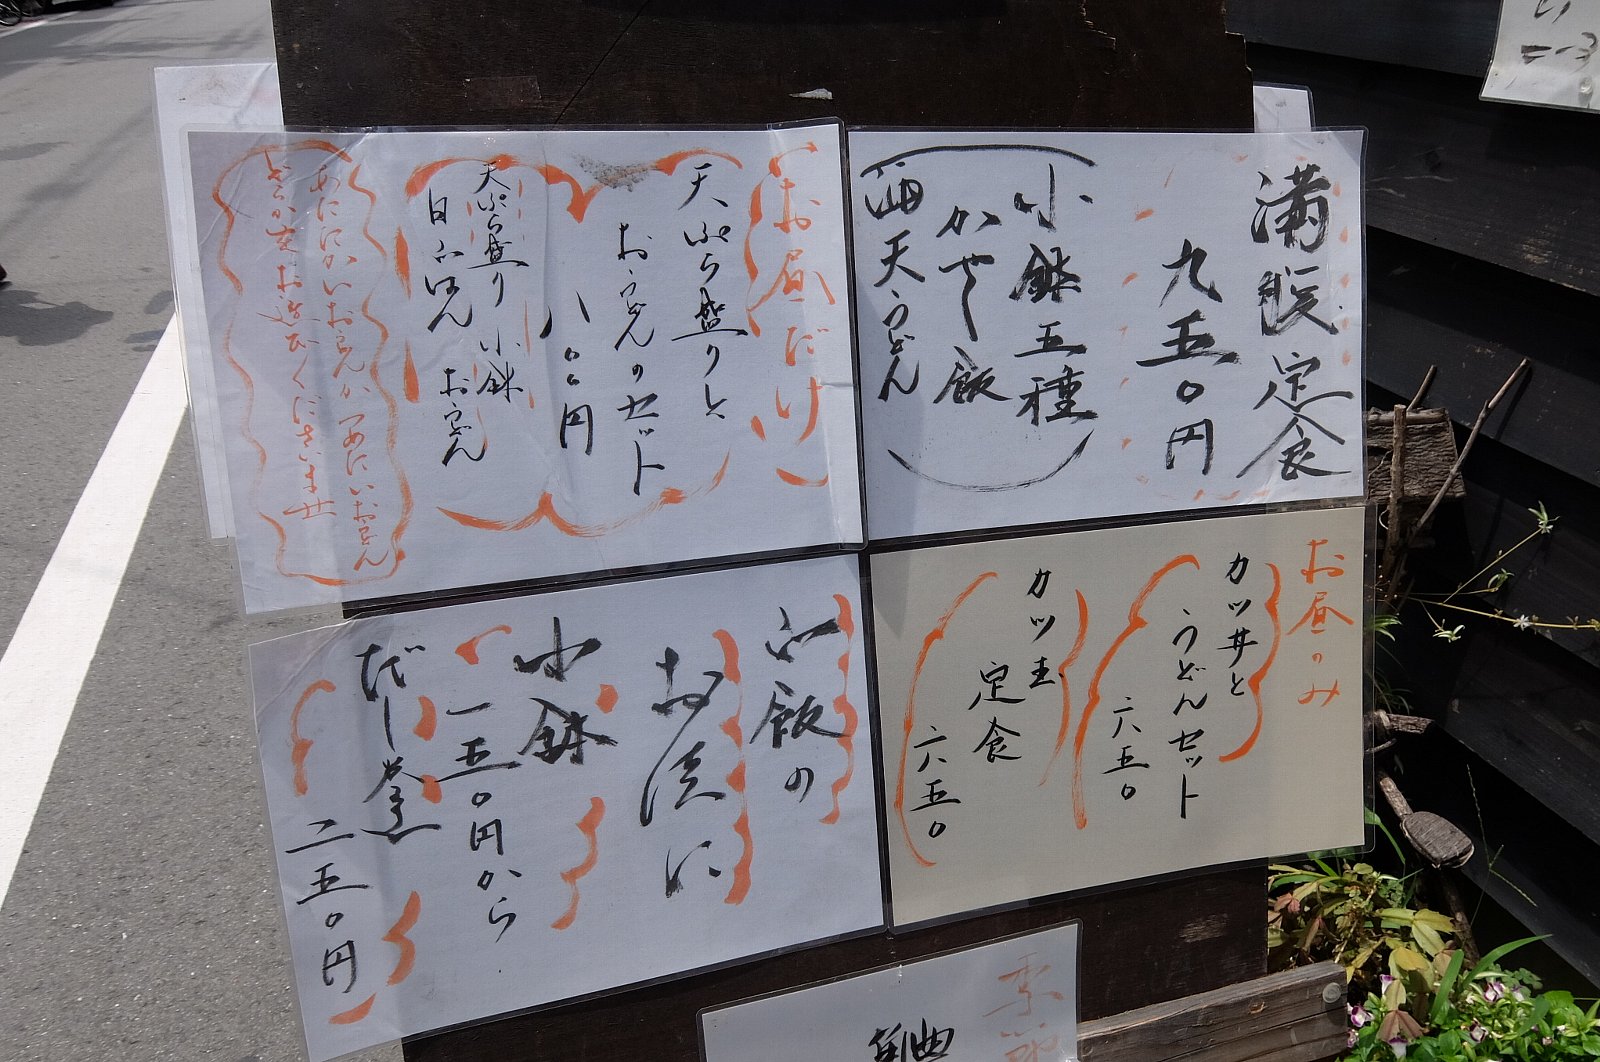 満腹定食
九五〇円
小鉢五種
かやく飯
天うどん
お昼だけ
天ぷら盛りと
おうどんのセット
八〇〇円
天ぷら盛り 小鉢
白ごはん おうどん
あたたかいおうどんか つめたいおうどん
どちらか お選びくださいませ
お昼のみ
カツ丼と
うどんセット
六五〇
カツ玉
定食
六五〇
ご飯の
お供に
小鉢
一五〇円から
だし巻
二五〇円
季節